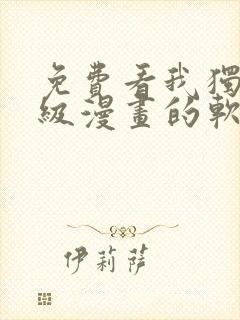 免費看我獨
級漫畫的軟
伊莉薩